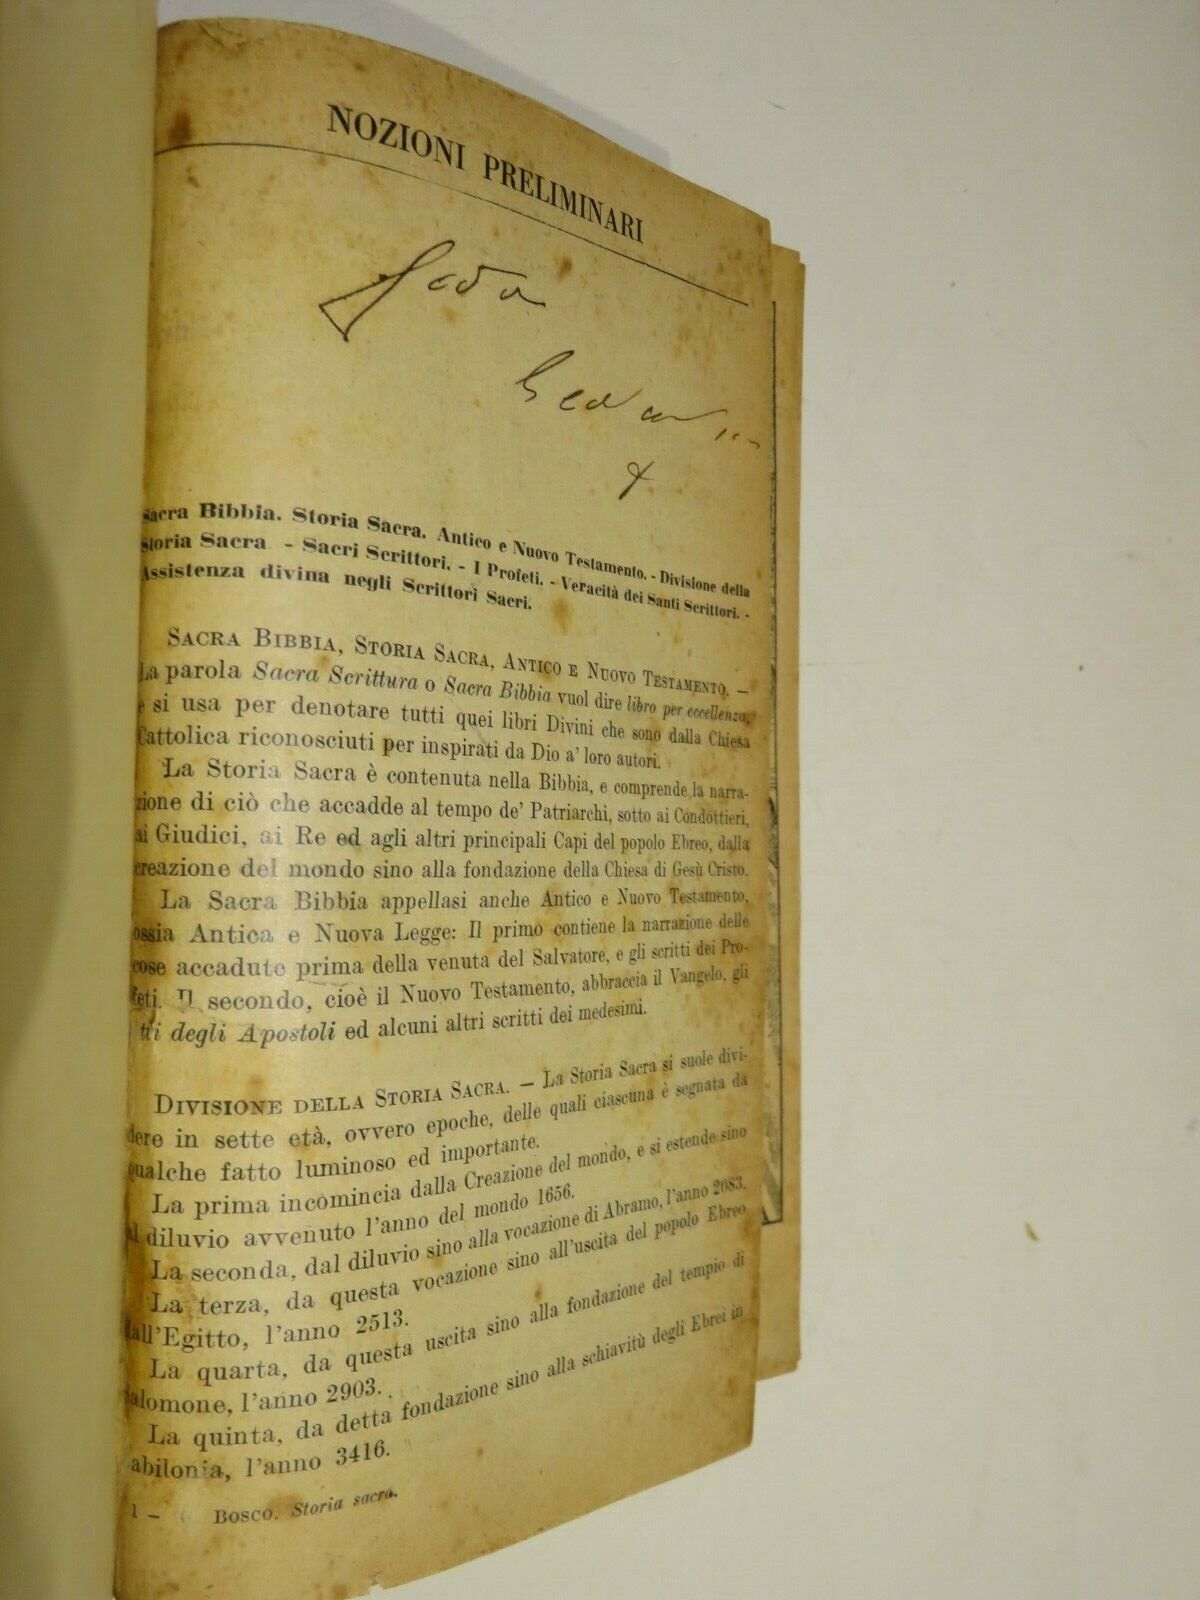 NOZIONI PRELIMINARI
Sacra Bibbia. Storia Sacra. Antico e Nuovo Testamento. - Divisione della
Storia Sacra - Sacri Scrittori. - I Profeti. - Veracità dei Santi Scrittori. -
Assistenza divina negli Scrittori Sacri.
SACRA BIBBIA, STORIA SACRA, ANTICO E NUOVO TESTAMENTO. —
La parola Sacra Scrittura o Sacra Bibbia vuol dire libro per eccellenza,
e si usa per denotare tutti quei libri Divini che sono dalla Chiesa
Cattolica riconosciuti per inspirati da Dio a' loro autori.
La Storia Sacra è contenuta nella Bibbia, e comprende la narra-
zione di ciò che accadde al tempo de' Patriarchi, sotto ai Condottieri,
ai Giudici, ai Re ed agli altri principali Capi del popolo Ebreo, dalla
creazione del mondo sino alla fondazione della Chiesa di Gesù Cristo.
La Sacra Bibbia appellasi anche Antico e Nuovo Testamento,
ossia Antica e Nuova Legge: Il primo contiene la narrazione delle
cose accadute prima della venuta del Salvatore, e gli scritti dei Pro-
feti. Il secondo, cioè il Nuovo Testamento, abbraccia il Vangelo, gli
tti degli Apostoli ed alcuni altri scritti dei medesimi.
DIVISIONE DELLA STORIA SACRA. — La Storia Sacra si suole divi-
dere in sette età, ovvero epoche, delle quali ciascuna è segnata da
qualche fatto luminoso ed importante.
La prima incomincia dalla Creazione del mondo, e si estende sino
al diluvio avvenuto l'anno del mondo 1656.
La seconda, dal diluvio sino alla vocazione di Abramo, l'anno 2083.
La terza, da questa vocazione sino all'uscita del popolo Ebreo
dall'Egitto, l'anno 2513.
La quarta, da questa uscita sino alla fondazione del tempio di
Salomone, l'anno 2903.
La quinta, da detta fondazione sino alla schiavitù degli Ebrei in
abilonia, l'anno 3416.
1 — BOSCO. Storia sacra.